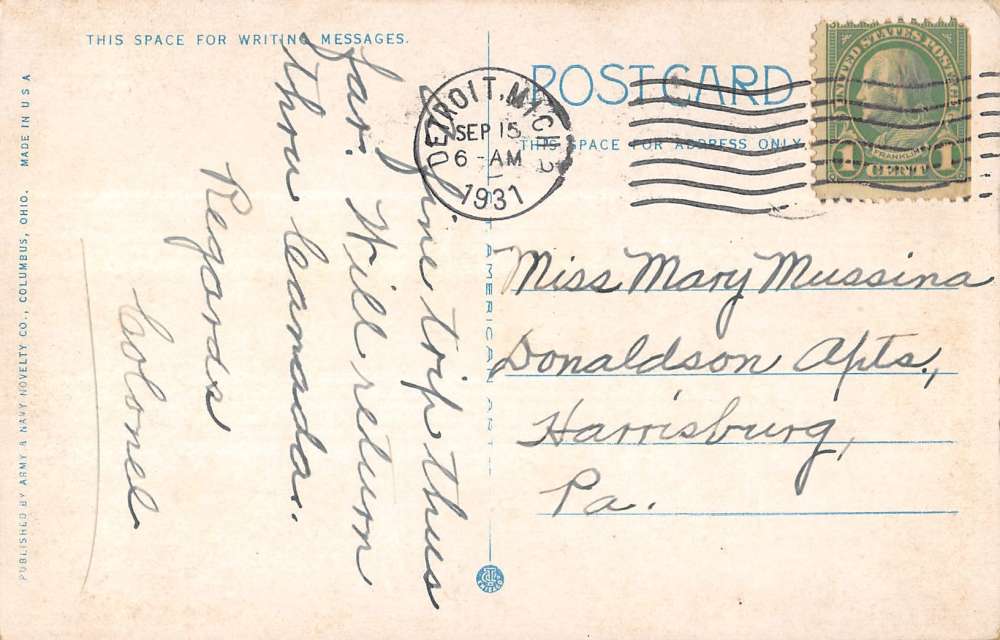 THIS SPACE FOR WRITING MESSAGES.
Fine trip thus
far. Will return
thru Canada.
Regards
Colonel
PUBLISHED BY ARMY & NAVY NOVELTY CO., COLUMBUS, OHIO. MADE IN U S A
DETROIT, MICH.
SEP 15
6 - AM
1931
POST CARD
THIS SPACE FOR ADDRESS ONLY
UNITED STATES POSTAGE
FRANKLIN
1 CENT 1
Miss Mary Mussina
Donaldson Apts.,
Harrisburg,
Pa.